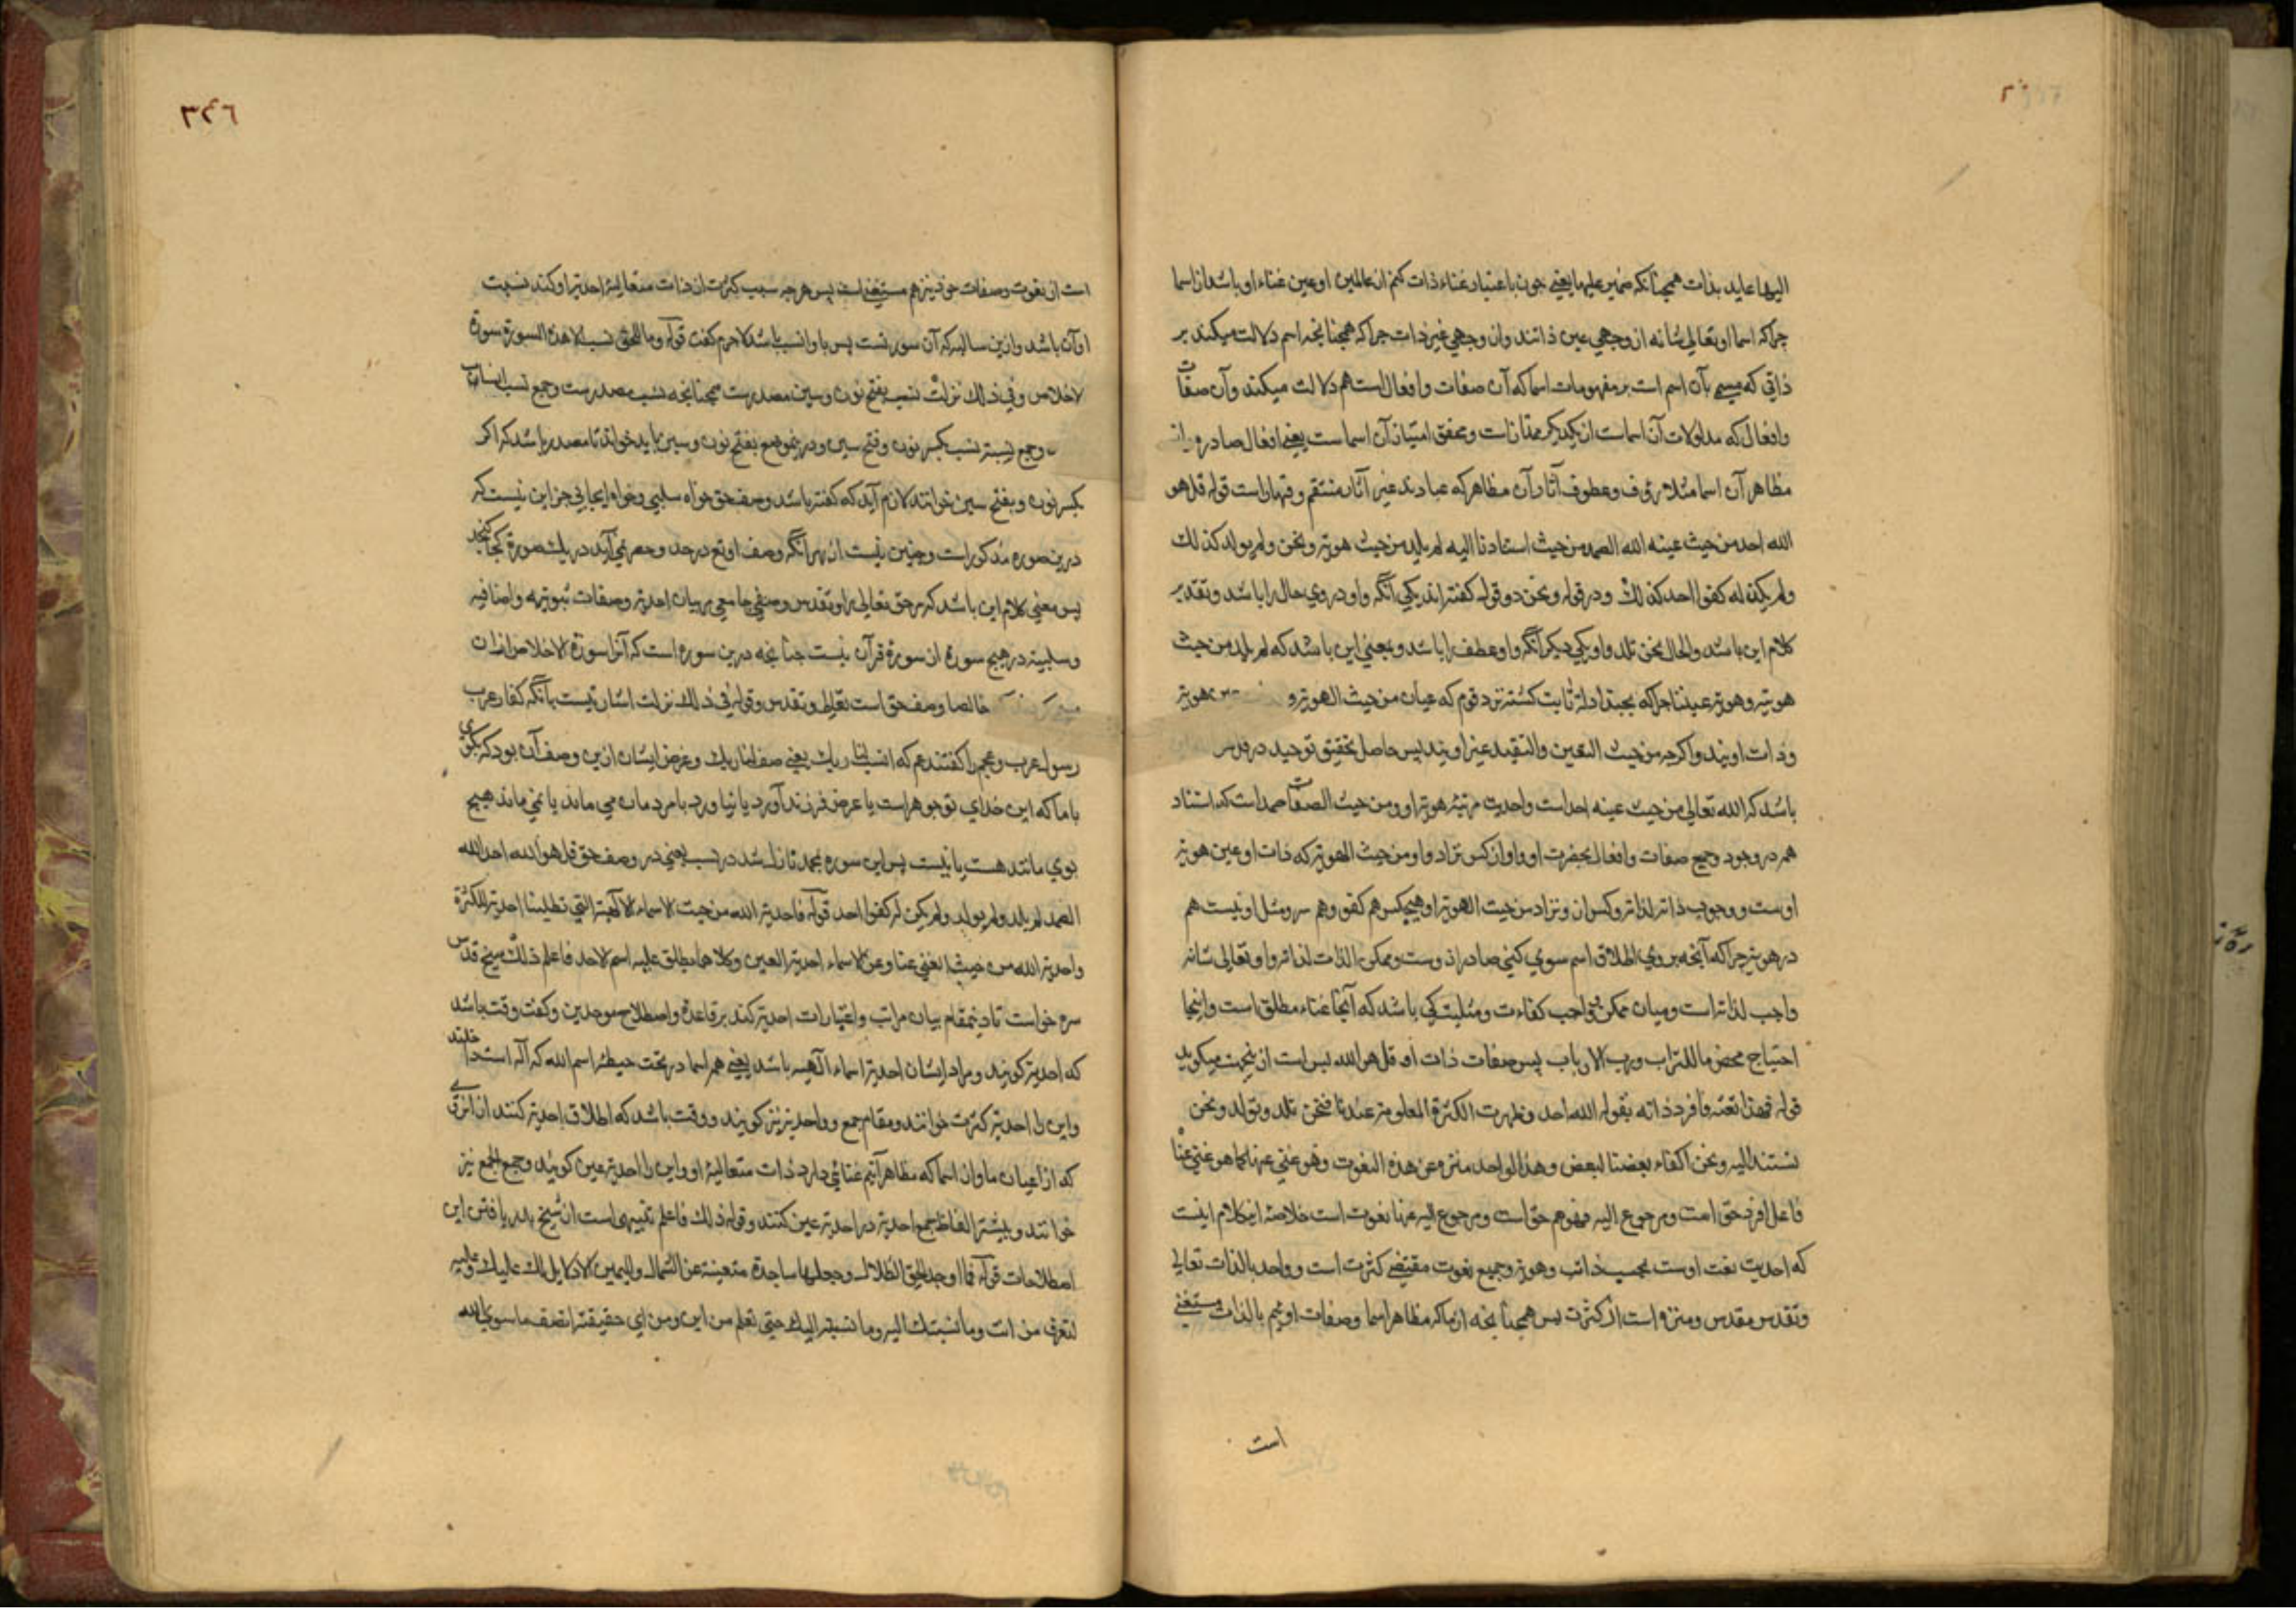 اليها عايد بذات همچنانكه ضمير عليها يعني چون باعتبار غناء ذات كنم از عالمين او عين غناء او باشد از اسما
چراكه اسما او تعالى شانه از وجهي عين ذاتند وان وجهي غير ذات چراكه همچنانچه اسم دلالت ميكند بر
ذاتي كه مسمي بآن اسم است بر مفهومات اسما كه آن صفات وافعال است هم دلالت ميكند وآن صفات
وافعال كه مدلولات آن اسماست از يكديكر ممتاز است ومحقق امتياز آن اسماست يعني افعال صادره از
مظاهر آن اسما مثلا رؤف وعطوف آثار آن مظاهر كه عبادند غير آثار منتقم وقهار است قوله قل هو
الله احد من حيث عينه الله الصمد من حيث استنادنا اليه لم يلد من حيث هويته ونحن ولم يولد كذلك
ولم يكن له كفوا احد كذلك ودر قوله ونحن دو قول كفته اند يكي آنكه واو در وي حال را باشد وتقدير
كلام اين باشد والحال نحن نلد واو يكي ديكر آنكه واو عطف را باشد ومعني اين باشد كه لم يلد من حيث
هويته وهويته عيننا چراكه بچند ادله ثابت كشته نزد قوم كه عيان من حيث الهويته و هويته
وذات اويند واكرچه من حيث التعين والتقيد غير اويند پس حاصل تحقيق توحيد در
باشد كه الله تعالى من حيث عينه احد است واحديت مرتبه هويته او ومن حيث الصفات صمد است كه استناد
همه در وجود وجميع صفات وافعال بحضرت او واو از كس نزاد واو من حيث الهويته كه ذات او عين هويته
اوست ووجوب ذاته لذاته وكس از و نزاد من حيث الهويته او وهيچكس هم كفو وهم سر ومثل او نيست هم
در هويته چراكه آنچه بروي اطلاق اسم سوي كني صادر از وست وممكن الذات لذاته واو تعالى شانه
واجب لذاته است وميان ممكن وواجب كفاءت ومثليت كي باشد كه آنجا غناء مطلق است واينجا
احتياج محض ما للتراب ورب الارباب پس صفات ذات او قل هو الله بس است ازينجهت ميكويد
قوله فهذا نعته فافرد ذاته بقوله الله احد وظهرت الكثرة المعلومة عندنا فنحن نلد ونولد ونحن
نستند اليه ونحن اكفاء بعضنا لبعض وهذا الواحد منزه عن هذه النعوت وهو غني عنها كما هو غني عنا
فاعل افرد حق است ومرجوع اليه فهو هم حق است ومرجوع اليه عنها نعوت است خلاصة اين كلام اينست
كه احديت نعت اوست بحسب ذاته وهويته وجميع نعوت مقتضي كثرت است وواحد بالذات تعالى
وتقدس مقدس ومنزه است از كثرت پس همچنانچه از ماكه مظاهر اسما وصفات اوئيم بالذات مستغني
است
٣٤٦
است از نعوت وصفات خود نيز هم مستغني است پس هرچه سبب كثرت از ذات متعاليه احديته او كند نسبت
او آن باشد وازين سالبه كه آن سورتست پس باو انسب باشد لاجرم كفت قوله وما للحق نسب الا هذه السورة سورة
لاخلاص وفي ذلك نزلت نسب بفتح نون وسين مصدرست همچنانچه نسب مصدرست وجمع نسب انساب
وجمع نسبة نسب بكسر نون وفتح سين ودرينموضع بفتح نون وسين بايد خواند تا مصدر باشد كه اكر
بكسر نون وبفتح سين خوانند لازم آيد كه كفته باشد وصف حق خواه سلبي وخواه ايجابي جز اين نيست كه
درين سوره مذكور است وچنين نيست از بهر آنكه وصف او تع در حد وحصر نمي آيد در يك سورة كجا كنجد
پس معني كلام اين باشد كه مر حق تعالى را وتقدس وصفي جامعي بر بيان احديته وصفات ثبوتيه واضافيه
وسلبيه در هيچ سورة از سورة قرآن نيست چنانچه درين سوره است كه آنرا سورة الاخلاص ازان
خالصا وصف حق است تعالى وتقدس وقوله في ذلك نزلت اشارتيست بآنكه كفار عرب
رسول عرب وعجم را كفتند عم كه انسب لنا ربك يعني صف لنا ربك وغرض ايشان ازين وصف آن بود كه بكوي
باما كه اين خداي تو جوهر است يا عرض فرزند آورد يا نياورد بامردمان مي ماند يا نمي ماند هيچ
بوي مانند هست يا نيست پس اين سوره بحمد نازل شد در نسب يعني در وصف حق قل هو الله احد الله
الصمد لم يلد ولم يولد ولم يكن له كفوا احد قوله فاحدية الله من حيث الاسماء الالهية التي تطلبنا احدية الكثرة
واحدية الله من حيث الغني عنا وعن الاسماء احدية العين وكلاهما يطلق عليه اسم الاحد فاعلم ذلك شيخ قدس
سره خواست تا درينمقام بيان مراتب واعتبارات احديته كند بر قاعدة واصطلاح موحدين وكفت وقت باشد
كه احديته كويند ومراد ايشان احديته اسماء الهيه باشد يعني همه اسما در تحت حيطه اسم الله كه اله است داخلند
واين را احديته كثرت خوانند ومقام جمع وواحديته نيز كويند ووقت باشد كه اطلاق احديته كنند از انروي
كه از اعيان ما واز اسما كه مظاهر آنيم غنائي دارد ذات متعاليه او واين را احديته عين كويند وجمع الجمع نيز
خوانند وبيشتر الفاظ جمع احديته در احديته عين كنند وقوله ذلك فاعلم تنبيهي است از شيخ بدريافتن اين
اصطلاحات قوله فما اوجد الحق الظلال وجعلها ساجدة متفيئة عن الشمال واليمين الا دلايل لك عليك وعليه
لتعرف من انت وما نسبتك اليه وما نسبته اليك حتى تعلم من اين ومن اي حقيقة اتصف ما سوي الله